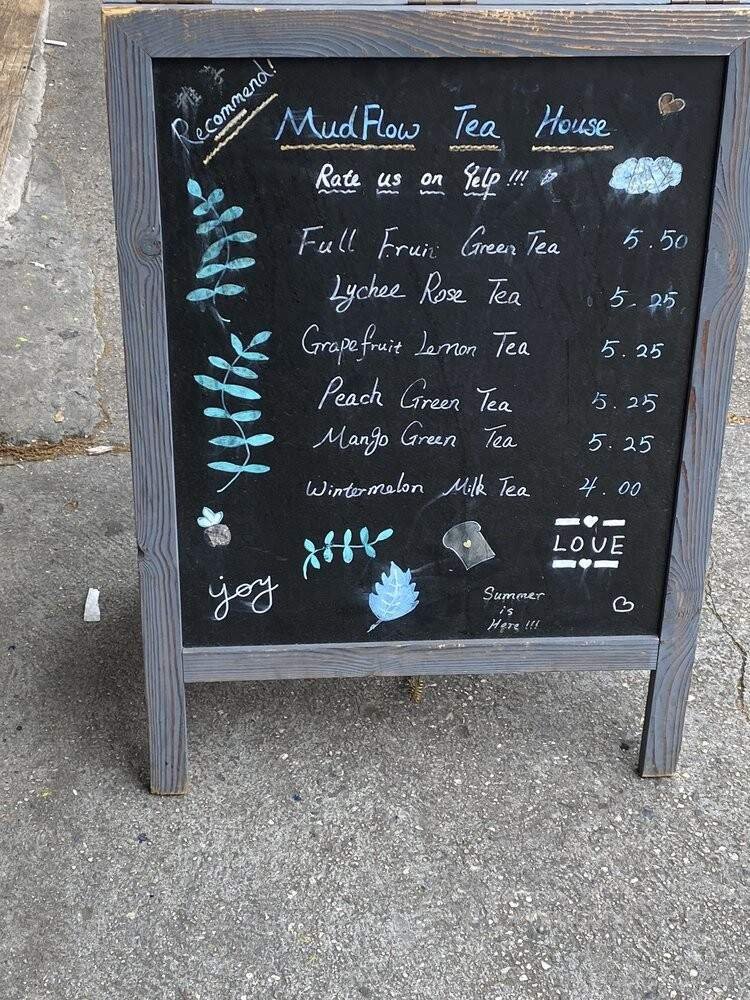 Recommend!
MudFlow Tea House
Rate us on Yelp!!!
Full Fruit Green Tea 5.50
Lychee Rose Tea 5.25
Grapefruit Lemon Tea 5.25
Peach Green Tea 5.25
Mango Green Tea 5.25
Wintermelon Milk Tea 4.00
LOVE
joy
Summer
is
Here!!!